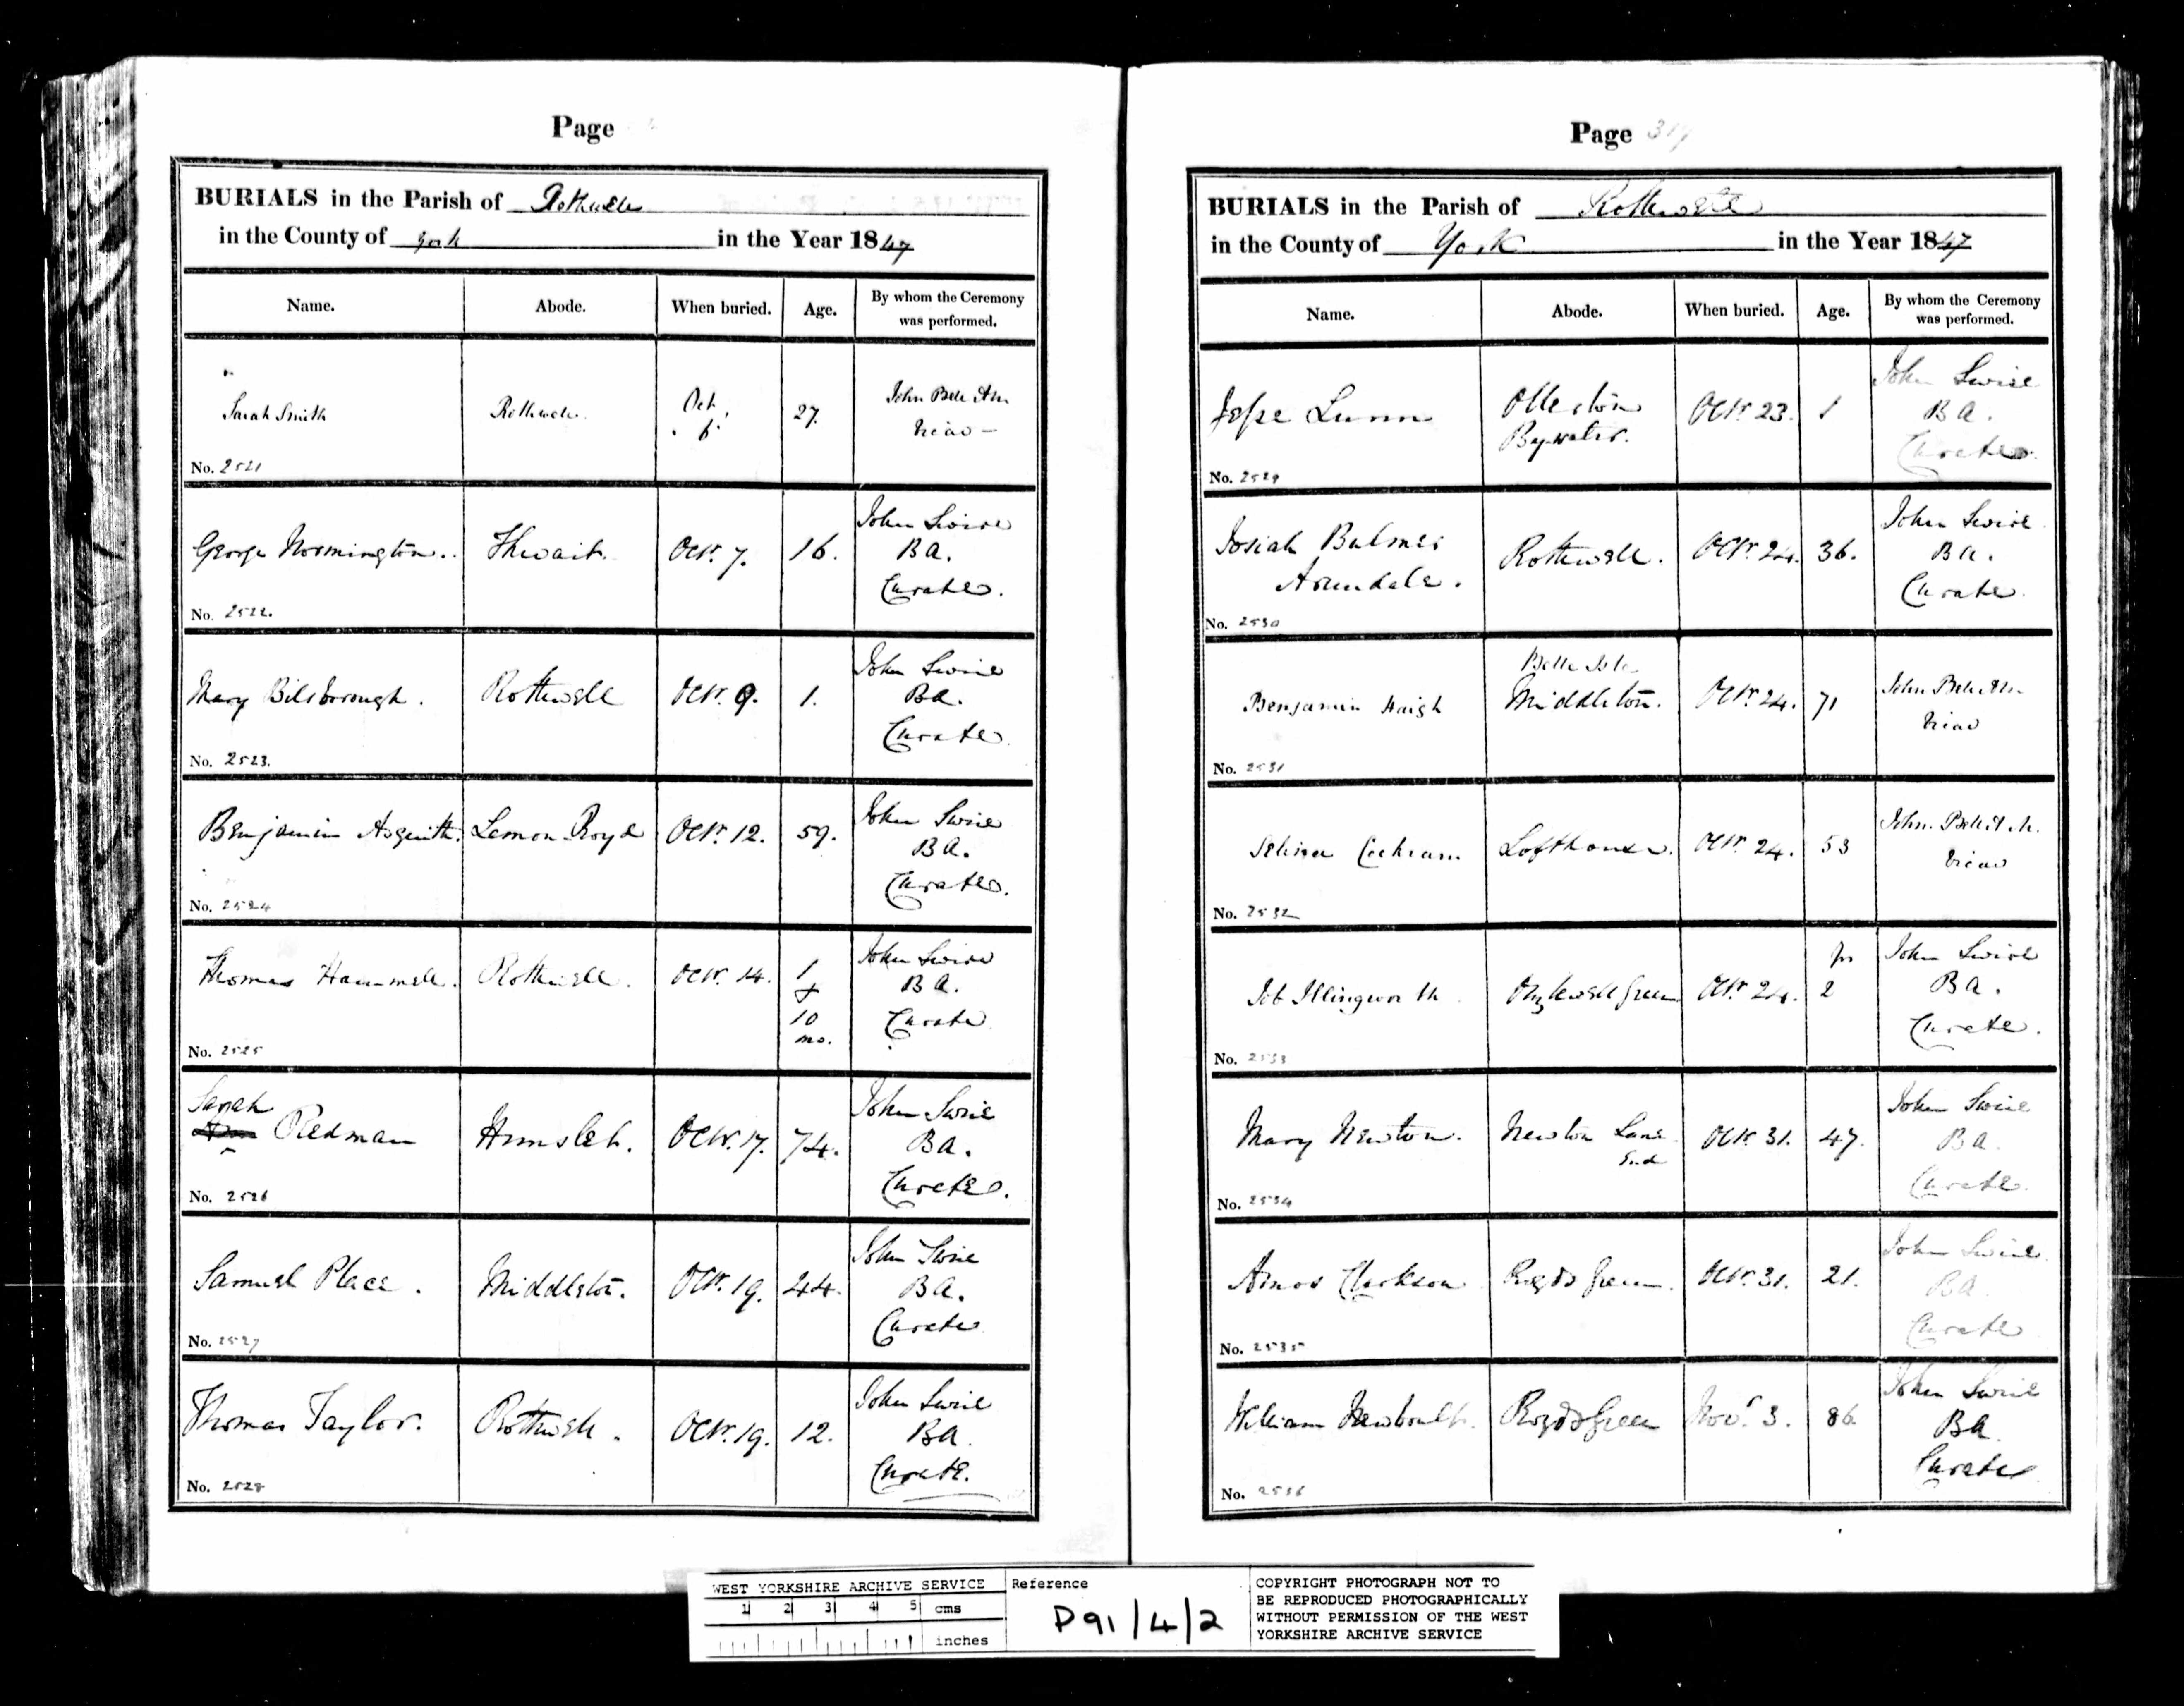 Page
BURIALS in the Parish of Rothwell
in the County of York in the Year 1847
Name. Abode. When buried. Age. By whom the Ceremony was performed.
Sarah Smith Rothwell Oct. 27. John Bell
Vicar
No. 2521
George Normington. Thwait. Octr. 7. 16. John Swire
BA.
Curate.
No. 2522.
Mary Bilsborough. Rothwell Octr. 9. 1. John Swire
BA.
Curate
No. 2523.
Benjamin Asquith. Lemon Royd Octr. 12. 59. John Swire
BA.
Curate.
No. 2524
Thomas Hammell. Rothwell. Octr. 14. 1
+
10
mo. John Swire
BA.
Curate
No. 2525
Sarah
Redman Hunslet. Octr. 17. 74. John Swire
BA.
Curate.
No. 2526
Samuel Place. Middleton. Octr. 19. 44. John Swire
BA.
Curate
No. 2527
Thomas Taylor. Rothwell. Octr. 19. 12. John Swire
BA
Curate.
No. 2528
Page 319
BURIALS in the Parish of Rothwell
in the County of York in the Year 1847
Name. Abode. When buried. Age. By whom the Ceremony was performed.
Jesse Lunn Allerton
Bywater. Octr. 23. 1 John Swire
BA.
Curate
No. 2529
Josiah Bulmer
Arundale. Rothwell. Octr. 24. 36. John Swire
BA.
Curate.
No. 2530
Benjamin Haigh Belle Isle
Middleton. Octr. 24. 71 John Bell
Vicar
No. 2531
Selina Cockram Lofthouse. Octr. 24. 53 John Bell
Vicar
No. 2532
Job Illingworth Ouzlewell Green Octr. 24. 2 John Swire
BA.
Curate.
No. 2533
Mary Newton. Newton Lane
End Octr. 31. 47. John Swire
BA
Curate.
No. 2534
Amos Clarkson Royds Green. Octr. 31. 21. John Swire
BA
Curate
No. 2535
William Newboult. Royds Green Novr. 3. 86. John Swire
BA
Curate
No. 2536
WEST YORKSHIRE ARCHIVE SERVICE
1 2 3 4 5 cms
inches
Reference
P91/4/2
COPYRIGHT PHOTOGRAPH NOT TO
BE REPRODUCED PHOTOGRAPHICALLY
WITHOUT PERMISSION OF THE WEST
YORKSHIRE ARCHIVE SERVICE